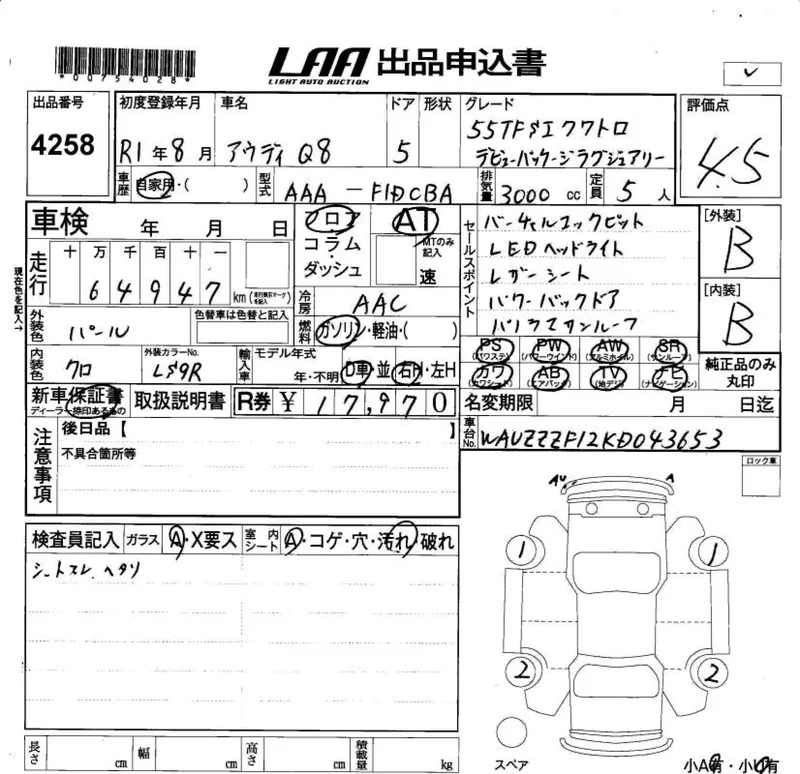 *00754028*
LAA 出品申込書
LIGHT AUTO AUCTION
出品番号 初度登録年月 車名 ドア 形状 グレード 評価点
4258 R1年8月 アウディ Q8 5 55TFSIクワトロ 4.5
デビューパッケージラグジュアリー
車歴 自家用・( ) 型式 AAA-F1DCBA 排気量 3000cc 定員 5人
車検 年 月 日 フロア AT
コラム MTのみ記入
ダッシュ 速
現在色を記入→
走行 十 万 千 百 十 一
64947 km (走行指示マークを記入)
セールスポイント
バーチャルコックピット
LEDヘッドライト
レザーシート
パワーバックドア
パノラマサンルーフ
[外装]
B
[内装]
B
冷房 AAC
外装色 パール 色替車は色替と記入
燃料 ガソリン・軽油・( )
内装色 クロ 外装カラーNo. LS9R
輸入車 モデル年式 年・不明 D車・並 右H・左H
PS (パワステ) PW (パワーウインド) AW (アルミホイル) SR (サンルーフ)
カワ (カワシート) AB (エアバッグ) TV (地デジ) ナビ (ナビゲーション)
純正品のみ丸印
新車保証書 ディーラー捺印あるもの 取扱説明書 R券 ¥17,970
名変期限 月 日迄
車台No. WAUZZZF12KD043653
注意事項 後日品【 】
不具合箇所等
ロック車
検査員記入 ガラス A・X要ス 室内シート A・コゲ・穴・汚れ・破れ
シートスレ、ヘタリ
AU A
1 1
2 2
スペア
小A有・小U有
長さ cm 幅 cm 高さ cm 積載量 kg